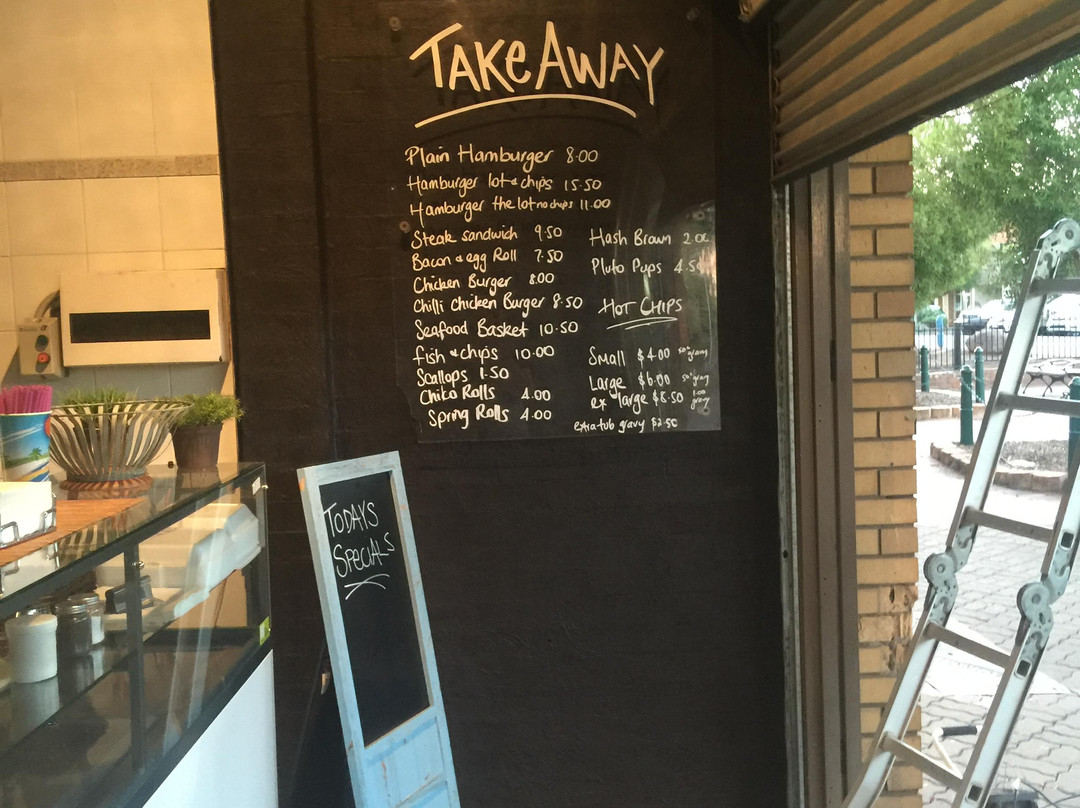 TAKE AWAY
Plain Hamburger 8.00
Hamburger lot & chips 15.50
Hamburger the lot no chips 11.00
Steak sandwich 9.50
Bacon & egg Roll 7.50
Chicken Burger 8.00
Chilli Chicken Burger 8.50
Seafood Basket 10.50
fish & chips 10.00
Scallops 1.50
Chiko Rolls 4.00
Spring Rolls 4.00
Hash Brown 2.00
Pluto Pups 4.50
HOT CHIPS
Small $4.00 50¢ gravy
Large $6.00 50¢ gravy
ex large $8.50 1.00 gravy
extra tub gravy $2.50
TODAYS
SPECIALS